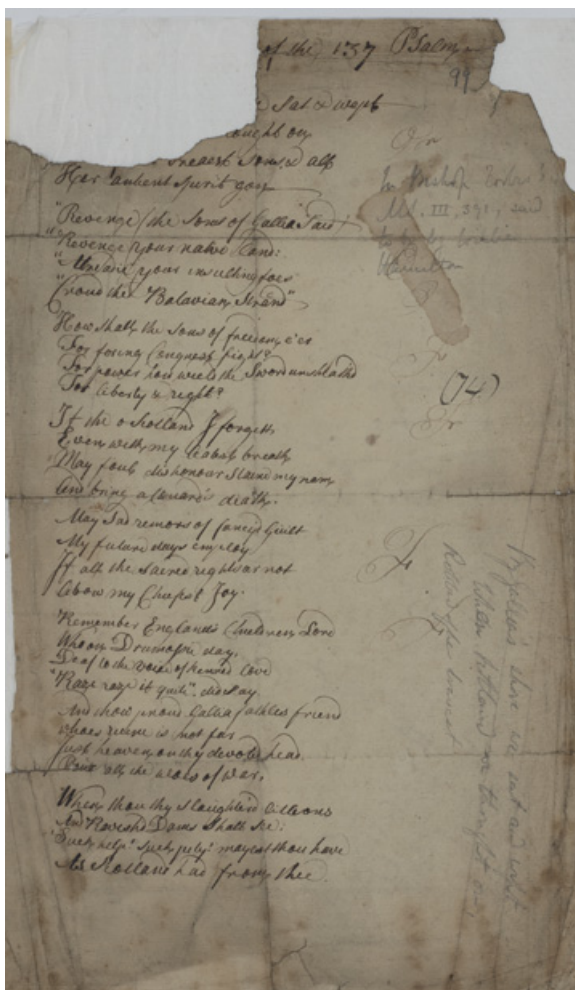 of the 137 Psalm
99
sat & wept
ought on
Sons, & all
Her antient spirit gon
"Revenge (the sons of Gallia said)
"Revenge your native Land:
your insulting foes
"Croud the Batavian Strand"
How shall the sons of freedom e'er
For foreing Conquest fight?
For power how wield the Sword unsheathd
For liberty & right?
If the o Scotland I forgett
Even with my breath
May foul dishonour Staind my nam
And bring a Cuard's death.
May Sad remors of fancyd Guilt
My future days employ
If all the Sacred rights ar not
Abow my Cheifest Joy.
Remember England's Children Lord
Who on Drumosie day,
Deaf to the voice of kindred Love
"Raze raze it quite" did say
And thow proud Gallia faithless friend
whoes ruine is not far
Just heaven on thy devoted head
Pour all the woes of war.
When thou thy Slaughter'd
And Ravish'd Dams Shall See:
"Such help" "Such pity" mayest thou have
As Scotland had from thee
In Bishop Forbes's
III, 391, said
to be by William
Hamilton
(74)
By Gallia's shore we sat and wept
When Scotland we thought on